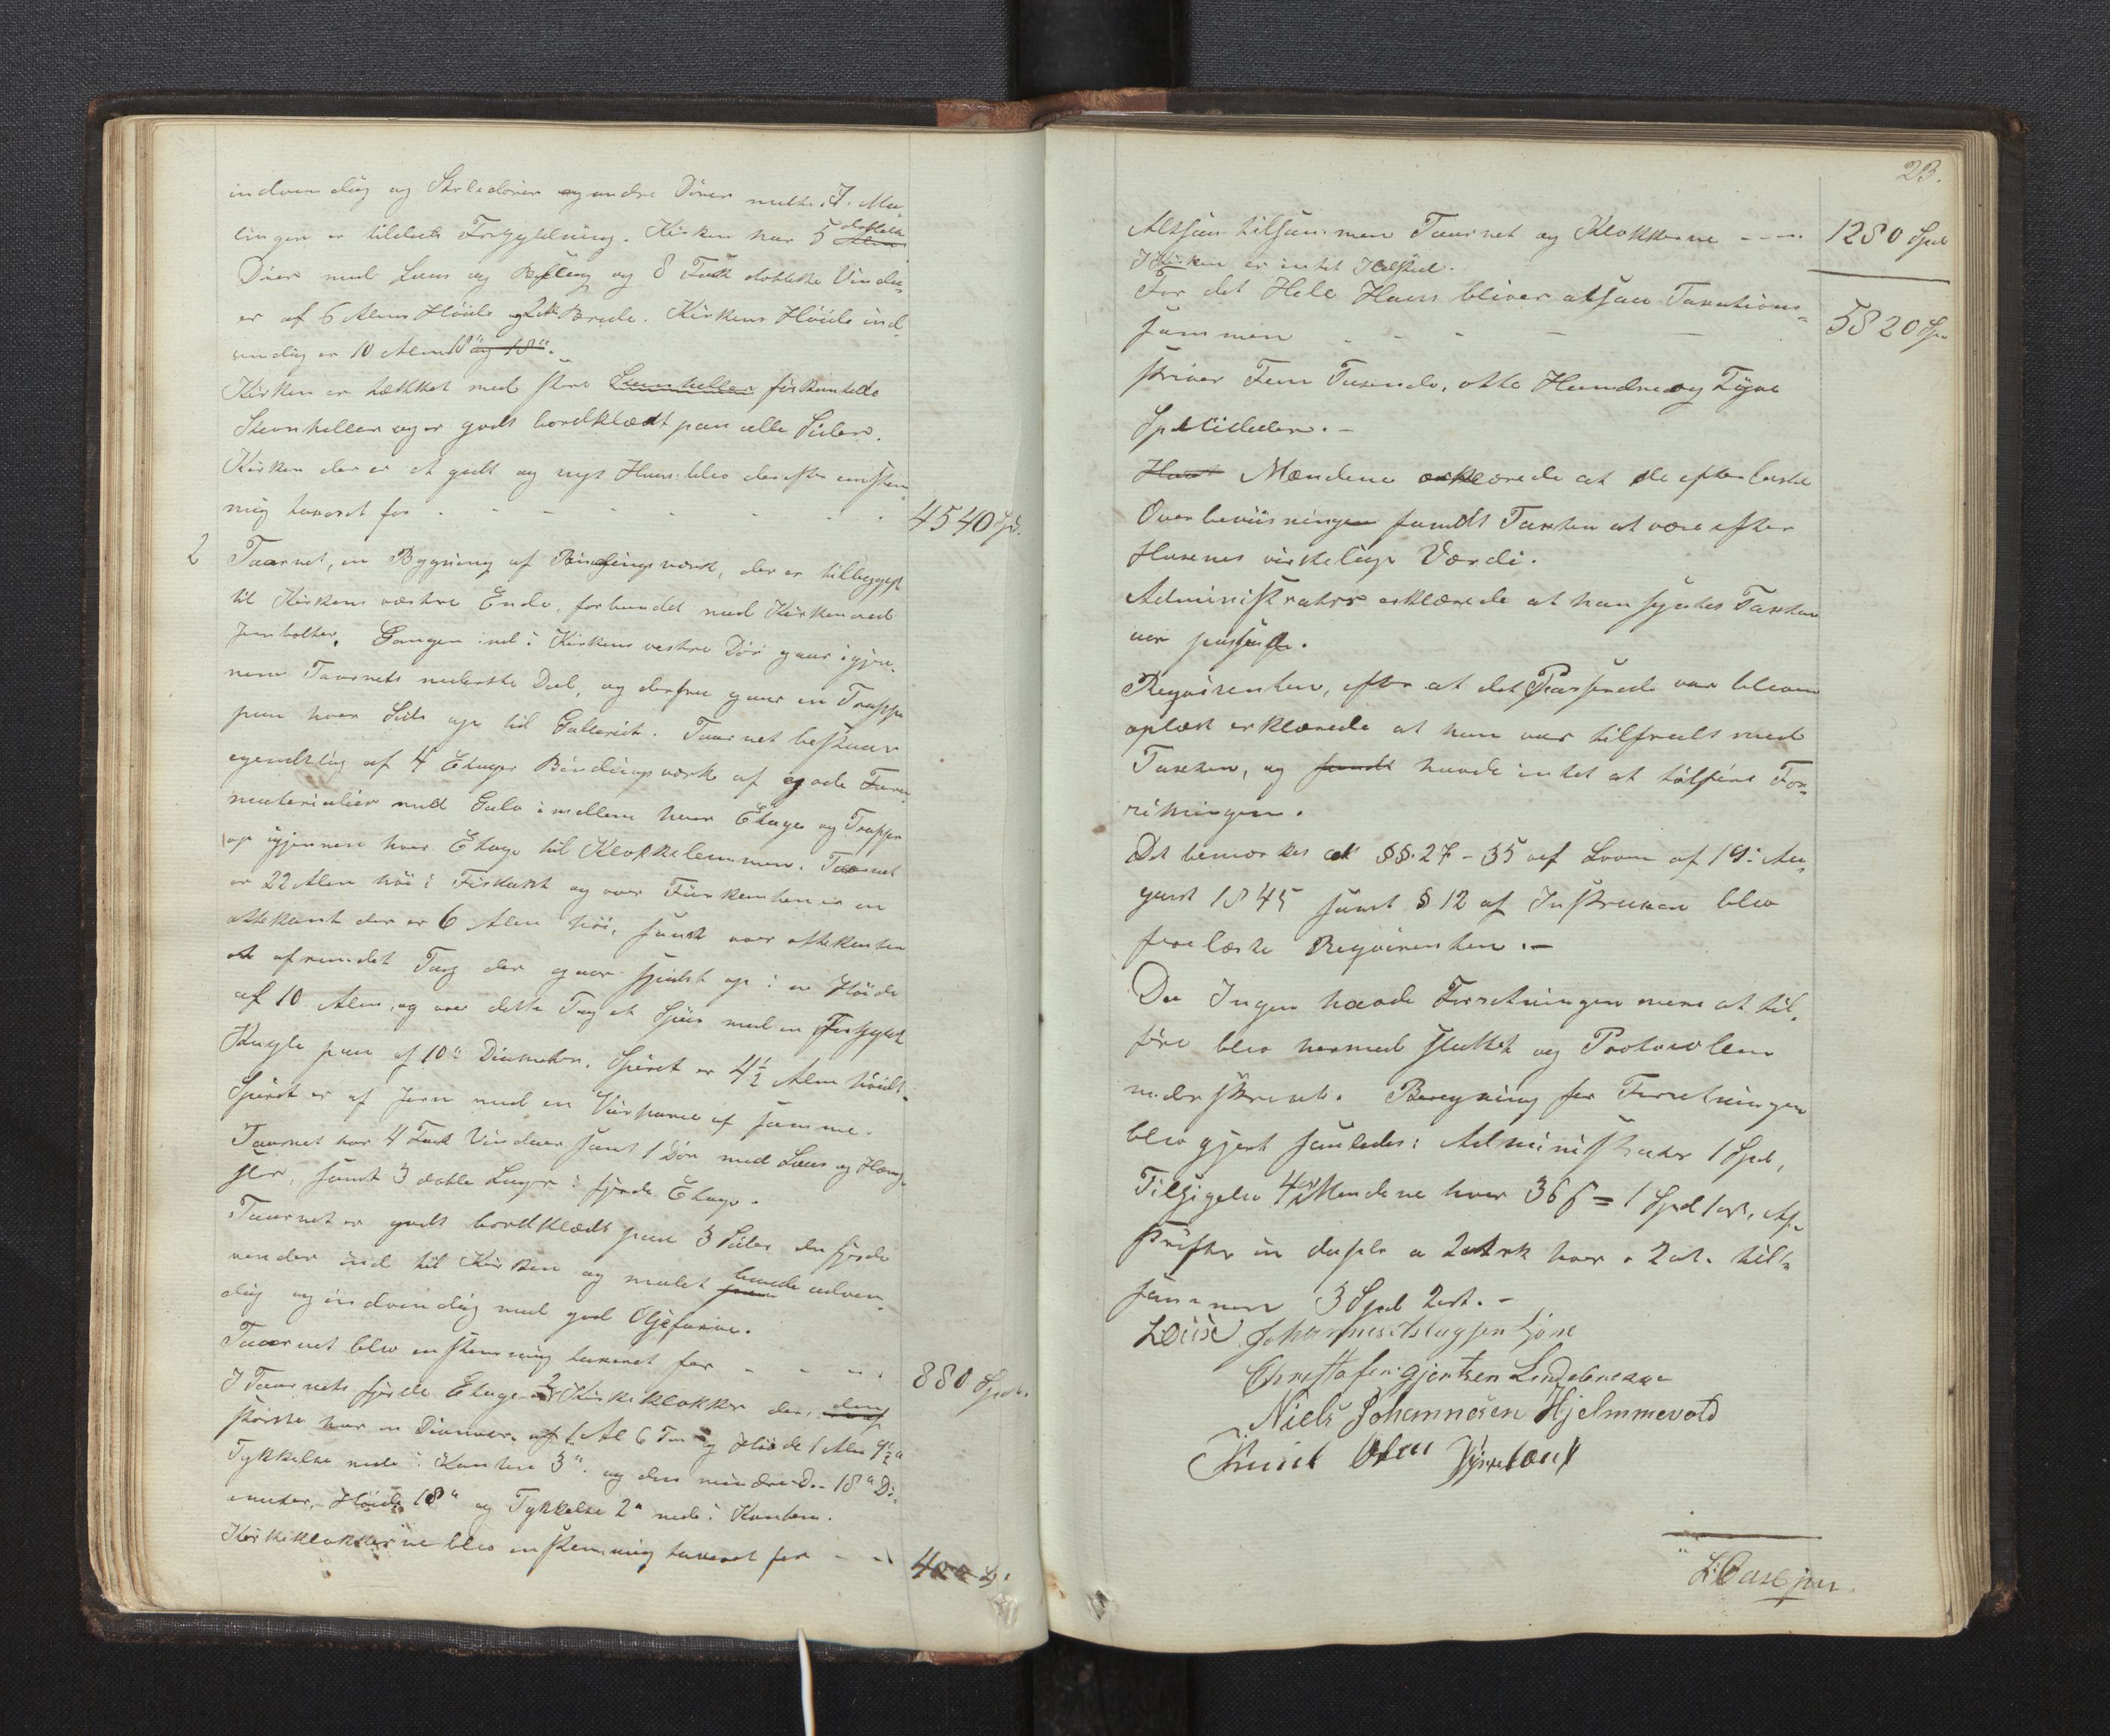 indvendig og Stoledører og andre Dører malte. I Ma-
lingen er tildeels Forgyldning. Kirken har 5 dobbelte
Døre med Laas og Beslag og 8 Fag dobbelte Vindu-
er af 6 Alens Høide og 2 Al: Brede. Kirkens Høide ind
vendig er 10 Alen 18" og 18".
Kirken er tækket med store Steenheller firkantede
Steenheller og er godt bordklædt paa alle Sider.
Kirken der er et godt og nyt Huus blev derefter eenstem-
mig taxeret for - - - - - - 4540 Spd.
2 Taarnet, en Bygning af Bindingsværk, der er tilbygget
til Kirkens vestre Ende, forbundet med Kirken ved
Jernbolter. Gangen ind i Kirkens vestre Dør gaar igjen-
nem Taarnets nederste Deel, og derfra gaar en Trappe
paa hver Side op til Galleriet. Taarnet bestaar
egentlig af 4 Etager Bindingsværk af gode Furu-
materialier med Gulv imellem hver Etage og Trapper
op igjennem hver Etage til Klokkelemmen. Taarnet
er 22 Alen høi i Firkant og over Firkanten er en
ottekant der er 6 Alen høi, samt over ottekanten
et afrundet Tag der gaar spidst op i en Høide
af 10 Alen, og over dette Tag et Spiir med en Forgyldt
Kugle paa af 10" Diameter. Spiret er 4½ Alen høidt.
Spiret er af Jern med en Veirhane af samme.
Taarnet har 4 Fag Vinduer samt 1 Dør med Laas og Hæng-
sler, samt 3 doble Luger i fjerde Etage.
Taarnet er godt bordklædt paa 3 Sider den fjerde
vender ind til Kirken og malet baade udven-
dig og indvendig med god Oljefarve.
Taarnet blev eenstemmig taxeret for - - - - 880 Spd.
I Taarnets fjerde Etage er 2 Kirkeklokker den
største har en Diameter af 1 Al 6 Tm og Høide 1 Alen 9½"
Tykkelse nede i Kanten 3". og den mindre D.- 18" Di-
ameter, Høide 18" og Tykkelse 2" nede i Kanten.
Kirkeklokkerne blev eenstemmig taxeret for - - 400 Sp.
23.
Altsaa tilsammen Taarnet og Klokkerne - - - 1280 Spd
I Kirken er intet Ildsted.
For det Hele Huus bliver altsaa Taxations-
summen - - - - 5820 Sp.
skriver Fem Tusende, otte Hundre og Tyve
Speciedaler.-
Mændene erklærede at de efter bedste
Overbeviisningen fandt Taxten at være efter
Husenes virkelige Værdi.
Administrator erklærede at han syntes Taxten
var passende.
Reqvirenten, efter at det Passerede var bleven
oplæst erklærede at han var tilfreds med
Taxten, og fandt havde intet at tilføre For-
retningen.
Det bemærkes at §§. 27 - 35 af Loven af 19: Au-
gust 1845 samt § 12 af Instruxen blev
forelæste Reqvirenten.-
Da Ingen havde Forretningen mere at til-
føre blev hermed sluttet og Protocollen
underskrevet. Beregning for Forretningen
blev gjort saaledes: Administrator 1 Spd,
Tilsigelse 4 ort Mændene hver 36 ß = 1 Spd 1 ort, Af-
skrifter in duplo a 2 Ark hver a 2 ort. till-
sammen 3 Spd 2 ort.-
Johannes
Christoffer Gjertsen
Niels Johannesen Hjelmmevold
Knut Olsen